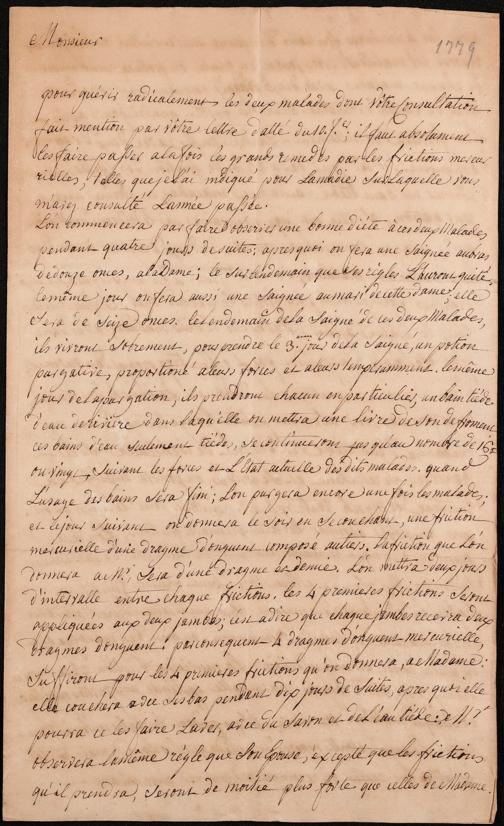 Monsieur
1779
pour guérir radicalement les deux malades dont vôtre Consultation
fait mention par vôtre lettre d'atté du il faut absolument
les faire passer a la fois les grands remedes par les frictions mercu
rielles; telles que je l'ai indiqué pour Lamadie sur Laquelle vous
mavez consulté L'année passée.
L'on commencera par faire observer une bonne diéte à ces deux Malades,
pendant quatre jours de suites; apres quoi on fera une Saignée au bras
de douze onces, a la Dame; le surlendemain que ses régles L'auront quité,
le même jour on fera aussi une Saignée au mari de cette dame; elle
Sera de Seize onces. le lendemain de la Saigné de ces deux Malades,
ils vivront Sobrement, pour prendre le 3.me jour de la Saigné, un potion
purgative, proportioné a leurs forces et a leurs tempéramment. le même
jour de la purgation, ils prendront chacun en particulier, un bain tiéde
d'eau de riviere dans laquelle on mettra une livre de son de froment
ces bains d'eau seulement tiédes, se continueront jusqu'au nombre de 15
ou vingt, Suivant les forces et L'Etat actuelle des dits malades. quand
L'usage des bains Sera fini; L'on purgera encore une fois les malades;
et le jour Suivant on donnera le Soir en se couchant, une friction
mercurielle d'une dragme d'onguent composé au tiers. la friction que L'on
donnera a M.r Sera d'une dragme et demie. L'on mettra deux jours
d'intervalle entre chaque frictions. les 4 premieres frictions Seront
appliquées aux deux jambes; c'est a dire que chaque jambes recevra deux
dragmes d'onguent: par consequent 4 dragmes d'onguent mercurielle,
Suffiront pour les 4 premieres frictions qu'on donnera, a Madame:
elle couchera avec ses bas pendant dix jours de Suites, apres quoi elle
pourra ce les faire Laver, avec du Savon et de L'eau tiéde: M.r
observera la même régle que Son Epouse, excepté que les frictions
qu'il prendra, Seront de moitié plus forte que celles de Madame.